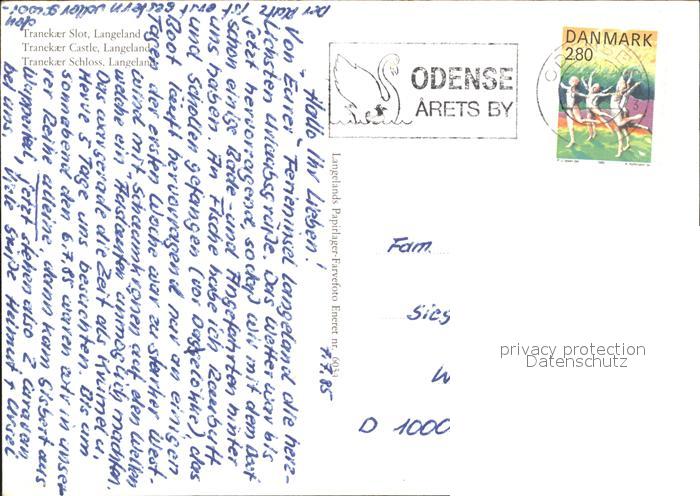 Tranekær Slot, Langeland
Tranekær Castle, Langeland
Tranekær Schloss, Langeland
ODENSE
ÅRETS BY
DANMARK
2.80
Langelands Papirlager-Farvefoto Eneret nr. 6034
11.7.85
Hallo Ihr Lieben!
Von Eurer Ferieninsel Langeland die herz-
lichsten Urlaubsgrüße. Das Wetter war bis
jetzt hervorragend, so daß wir mit dem Boot
schon einige Bade- und Angelfahrten hinter
uns haben. An Fische habe ich Hornhecht
und Schollen gefangen (vor Bagenkop), das
Boot läuft hervorragend nur an einigen
Tagen der ersten Woche war zu starker West-
wind mit Schaumkronen auf den Wellen
was ein Auslaufen unmöglich machten.
Das war gerade die Zeit als Krümel u.
Heike 5 Tage uns besuchten. Bis zum
sonnabend den 6.7.85 waren wir in unser
rer Reihe alleine dann kam Gisbert aus
Wuppertal, jetzt stehen also 2
bei uns. Viele Grüße Helmut +
Der Platz
ist
erst
gestern
den
Fam.
Sieg
W
D 1000
privacy protection
Datenschutz